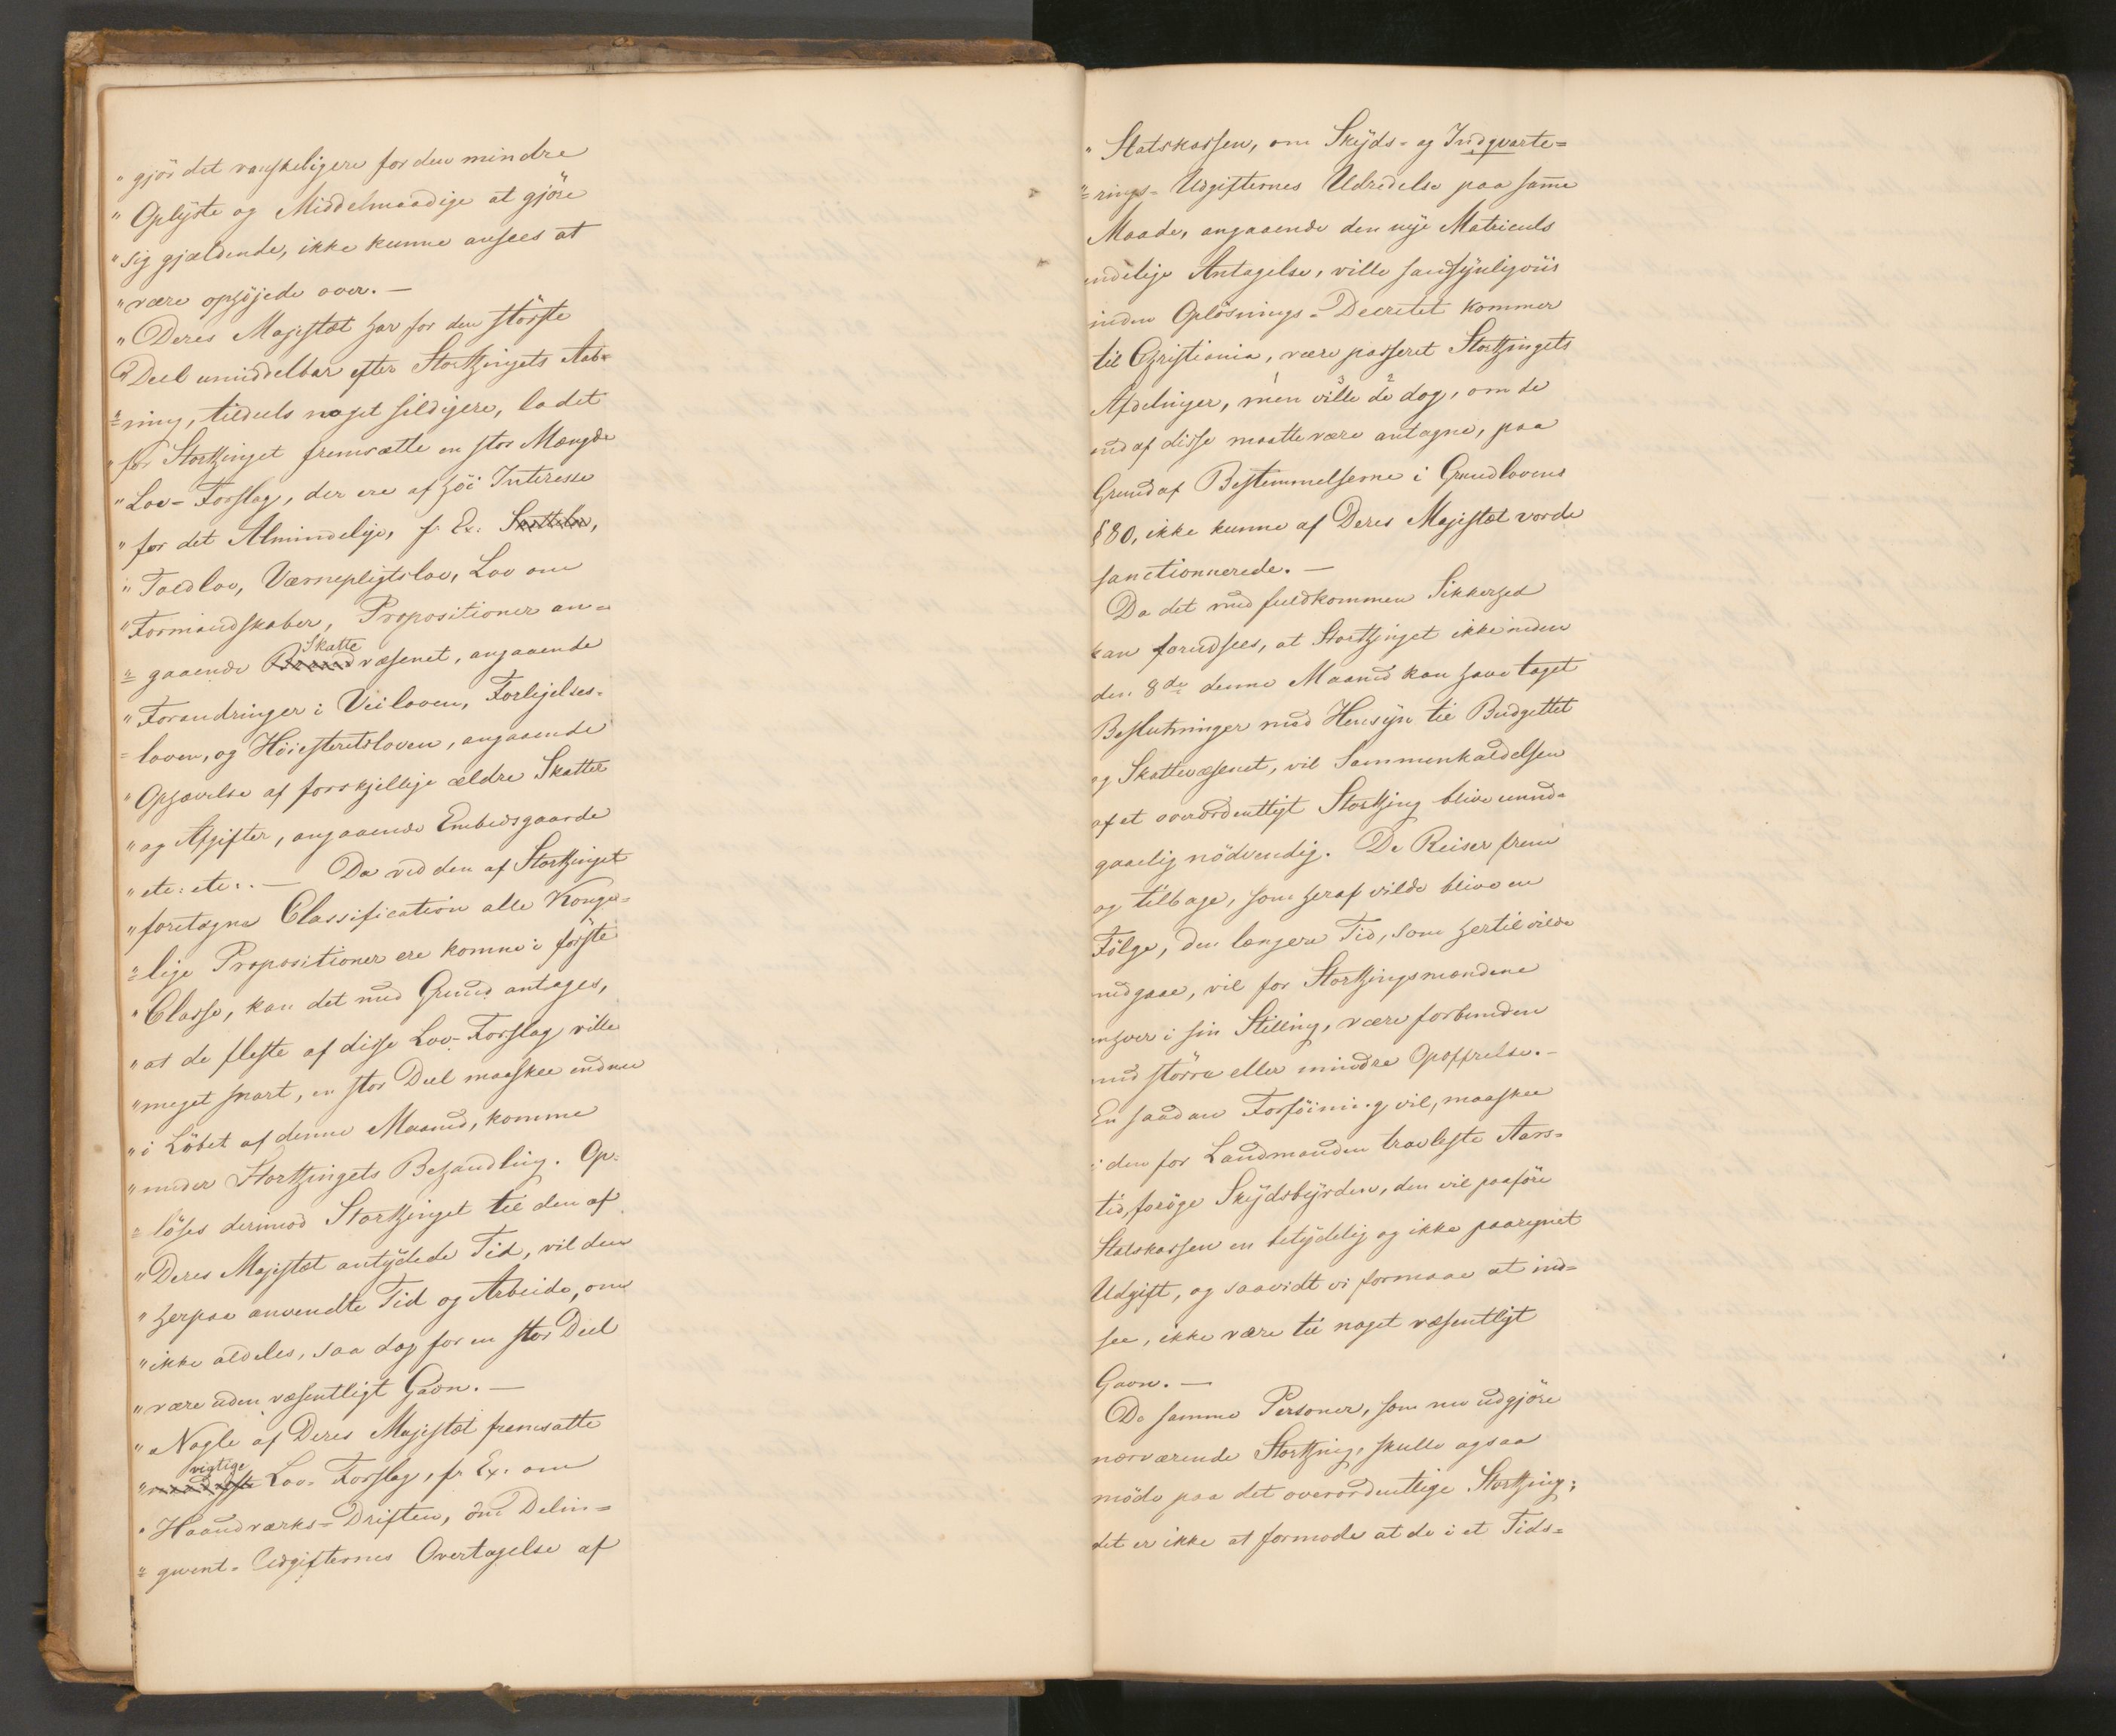 " gjör det vanskeligere for den mindre
" Oplyste og Middelmaadige at gjöre
" sig gjældende, ikke kunne ansees at
" være ophöjede over. —
" Deres Majestæt har for den störste
" Deel umiddelbar efter Storthingets Aab=
"= ning, tildeels noget sildigere, ladet
" for Storthinget fremsætte en stor Mængde
" Lov-Forslag, der ere af höi Interesse
" for det Almindelige, f: Ex:
" Toldlov, Værnepligtslov, Lov om
" Formandskaber, Propositioner an=
"= gaaende Skattevæsenet, angaaende
" Forandringer i Veiloven, Forligelses=
= loven, og Höiesteretsloven, angaaende
" Ophævelse af forskjellige ældre Skatter
" og Afgifter, angaaende Embedsgaarde
" etc: etc:. — Da ved den af Storthinget
" foretagne Classification alle Konge=
"= lige Propositioner ere komne i förste
" Classe, kan det med Grund antages,
" at de fleste af disse Lov-Forslag ville
" meget snart, en stor Deel maaskee endnu
" i Löbet af denne Maaned, komme
" under Storthingets Behandling. Op=
"= löses derimod Storthinget til den af
" Deres Majestæt antydede Tid, vil den
" herpaa anvendte Tid og Arbeide, om
" ikke aldeles, saa dog for en stor Deel
" være uden væsentligt Gavn. —
" Nogle af Deres Majestæt fremsatte
" vigtige Lov-Forslag, f: Ex: om
" Haandværks-Driften, om Delin=
"= qvent-Udgifternes Overtagelse af
" Statskassen, om Skyds- og Indqvarte=
"= rings-Udgifternes Udredelse paa samme
Maade, angaaende den nye Matriculs
endelige Antagelse, ville sandsynligviis
inden Oplösnings-Decretet kommer
til Christiania, være passeret Storthingets
Afdelinger, men ville de dog, om de
end af disse maatte være antagne, paa
Grund af Bestemmelserne i Grundlovens
§ 80, ikke kunne af Deres Majestæt vorde
sanctionnerede. —
Da det med fuldkommen Sikkerhed
kan forudsees, at Storthinget ikke inden
den 8de denne Maaned kan have taget
Beslutninger med Hensyn til Budgettet
og Skattevæsenet, vil Sammenkaldelsen
af et overordentligt Storthing blive uund=
gaaelig nödvendig. De Reiser frem
og tilbage, som heraf vilde blive en
Fölge, den længere Tid, som hertil vilde
medgaae, vil for Storthingsmændene
enhver i sin Stilling, være forbunden
med större eller mindre Opoffrelse. —
En saadan Forföining vil, maaskee
i den for Landmanden travleste Aars=
tid, foröge Skydsbyrden, den vil paaföre
Statskassen en betydelig og ikke paaregnet
Udgift, og saavidt vi formaae at ind=
see, ikke være til noget væsentligt
Gavn. —
De samme Personer, som nu udgjöre
nærværende Storthing, skulle ogsaa
möde paa det overordentlige Storthing;
det er ikke at formode at de i et Tids=